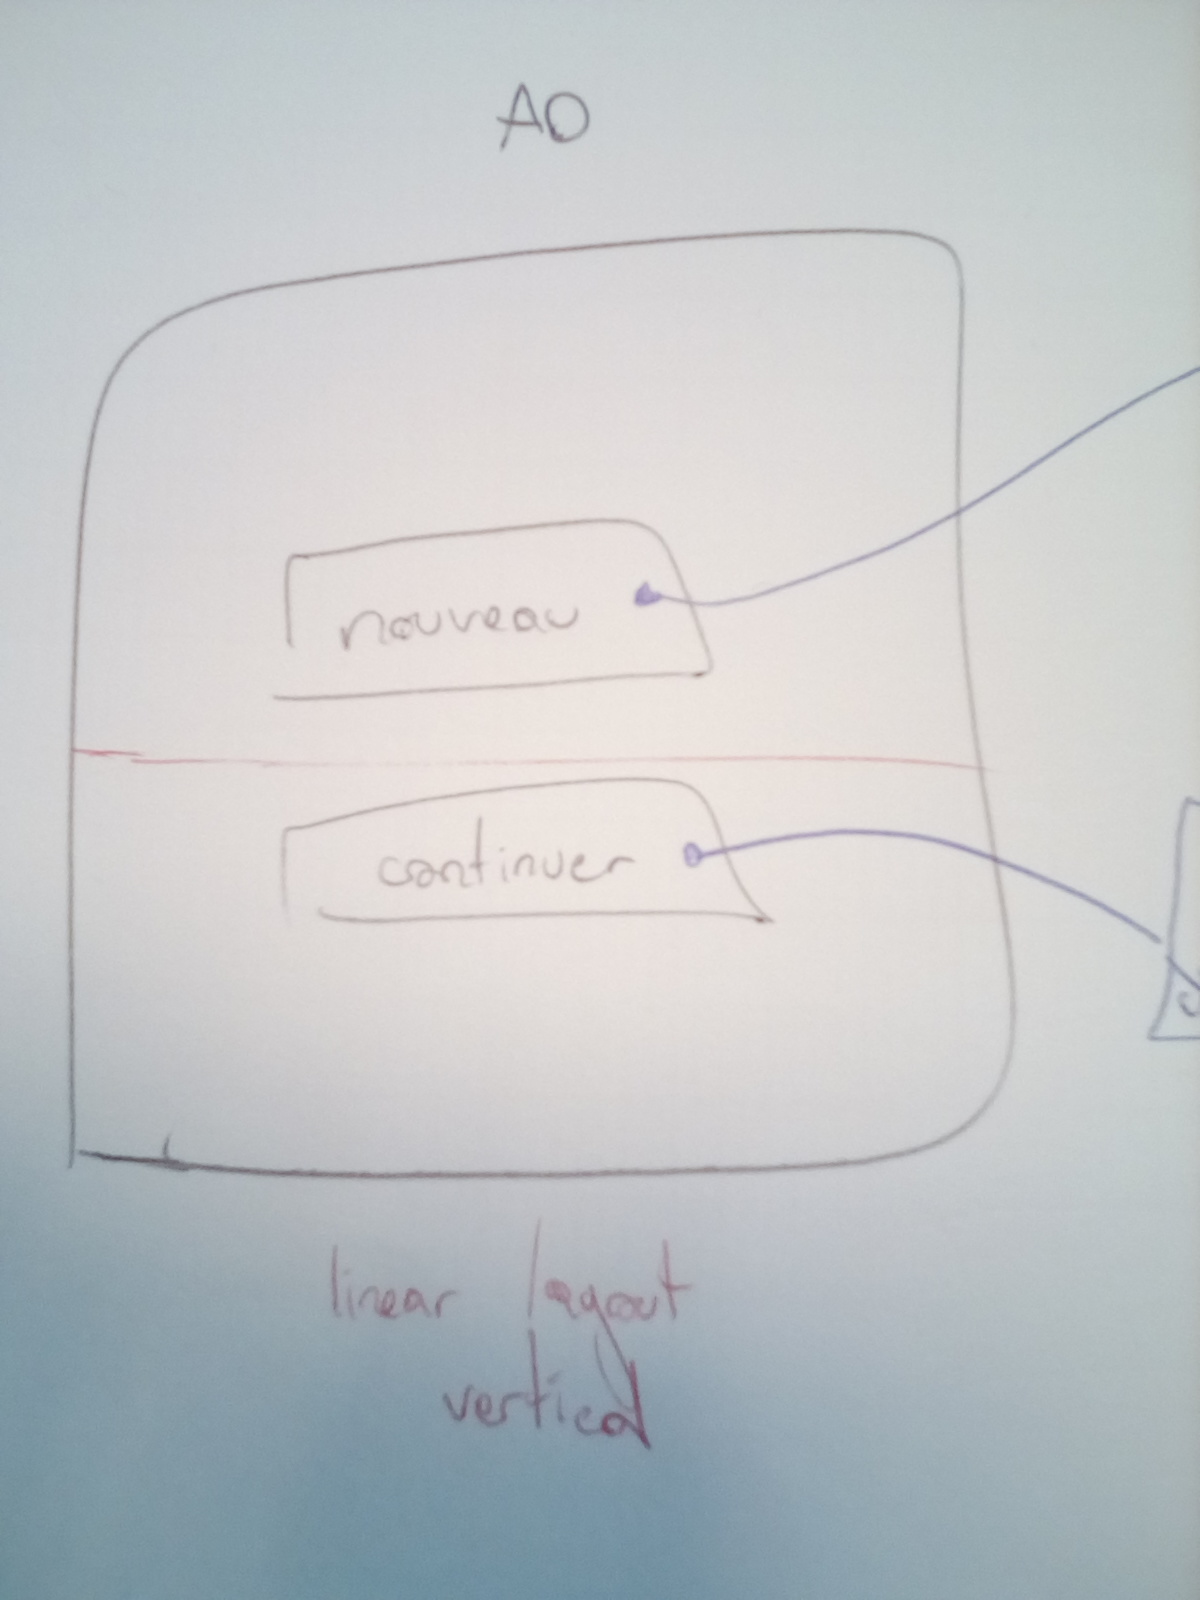 AO
nouveau
continuer
linear layout
vertical